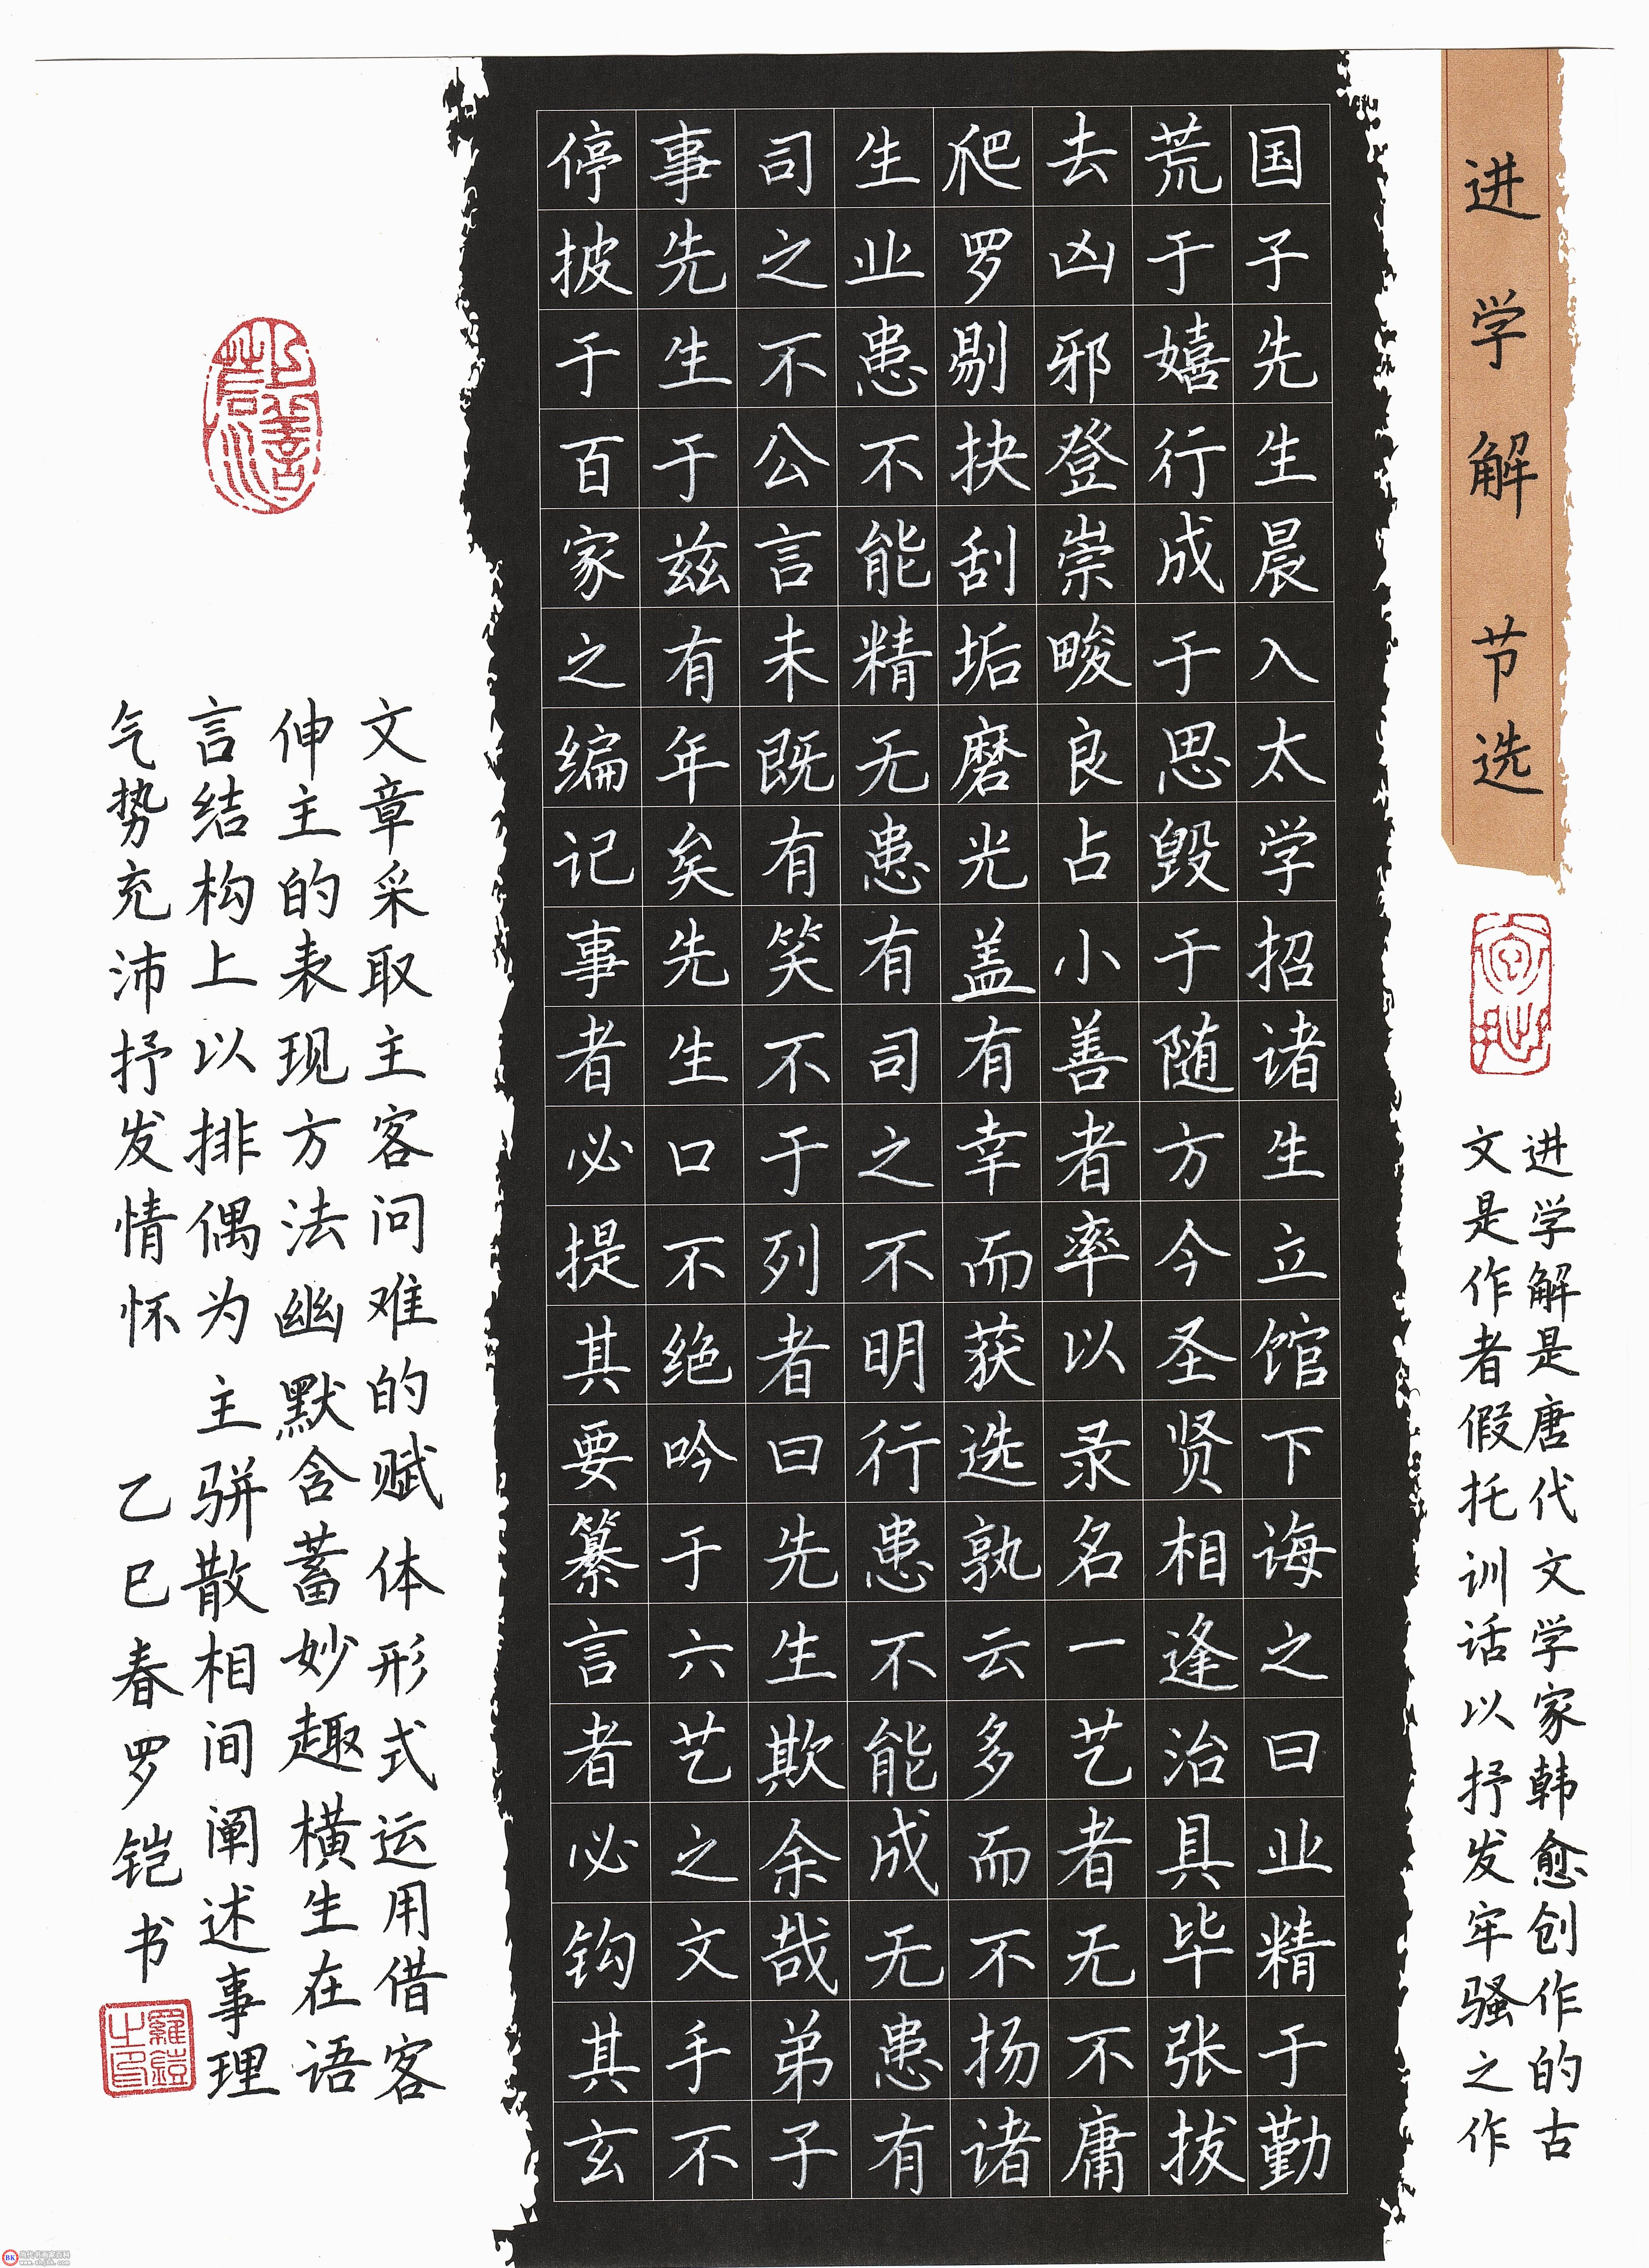 进学解 节选
进学解是唐代文学家韩愈创作的古
文是作者假托训话以抒发牢骚之作
国子先生晨入太学招诸生立馆下诲之曰业精于勤
荒于嬉行成于思毁于随方今圣贤相逢治具毕张拔
去凶邪登崇畯良占小善者率以录名一艺者无不庸
爬罗剔抉刮垢磨光盖有幸而获选孰云多而不扬诸
生业患不能精无患有司之不明行患不能成无患有
司之不公言未既有笑不于列者曰先生欺余哉弟子
事先生于兹有年矣先生口不绝吟于六艺之文手不
停披于百家之编记事者必提其要纂言者必钩其玄
上善若水
文章采取主客问难的赋体形式运用借客
伸主的表现方法幽默含蓄妙趣横生在语
言结构上以排偶为主骈散相间阐述事理
气势充沛抒发情怀 乙巳春罗铠书
羅鎧之印